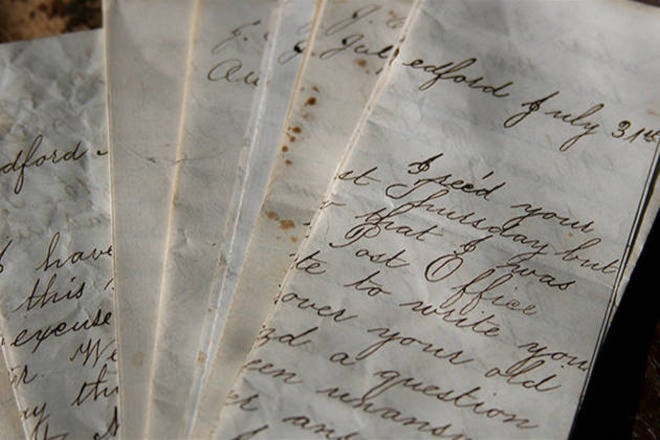 dford -
I have
this
excuse
r. We
ay th
J.
Au
J.
Jul
edford July 31st
I rec'd your
st Thursday but
that I was
Post Office
te to write you
over your old
nd a question
een unansw
er and